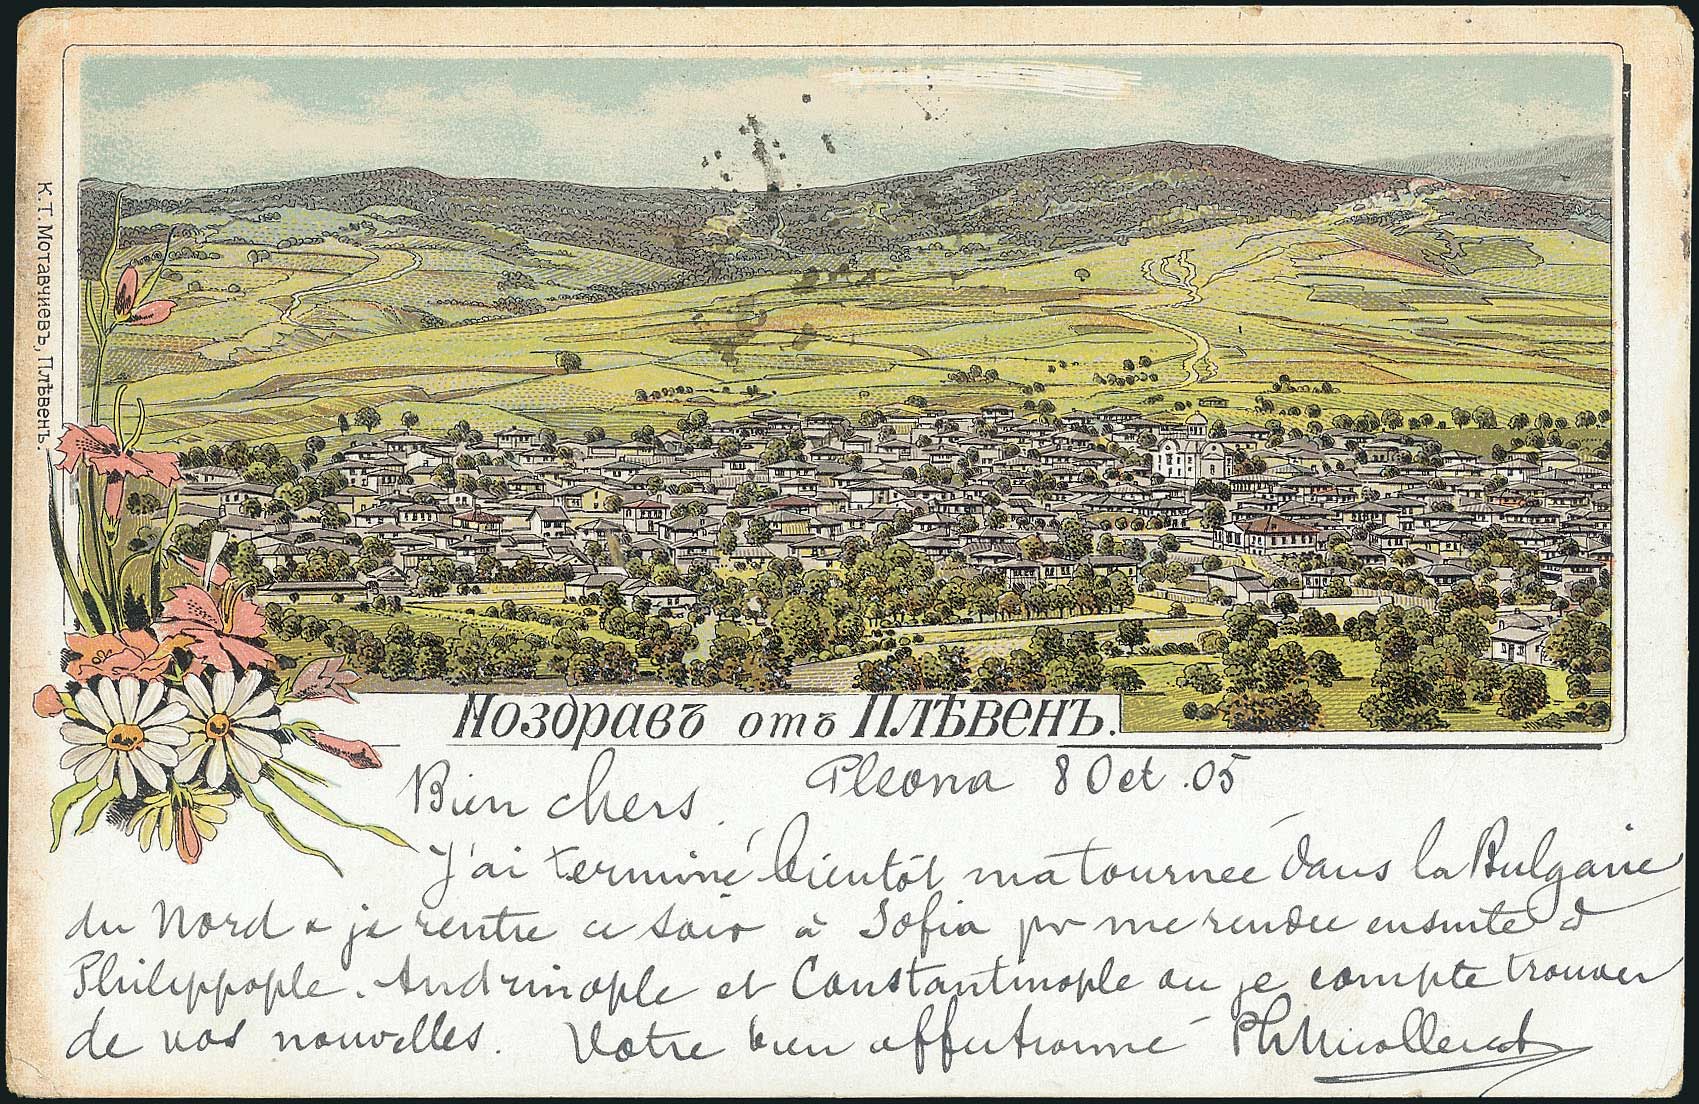 К. Т. Мотавчиевъ, Плѣвенъ.
Поздравъ отъ Плѣвенъ.
Plevna 8 Oct. 05
Bien chers.
J'ai terminé bientôt ma tournée dans la Bulgarie
du Nord & je rentre ce soir à Sofia pr me rendre ensuite à
Philippople. Andrinople et Constantinople ou je compte trouver
de vos nouvelles. Votre bien affectionné